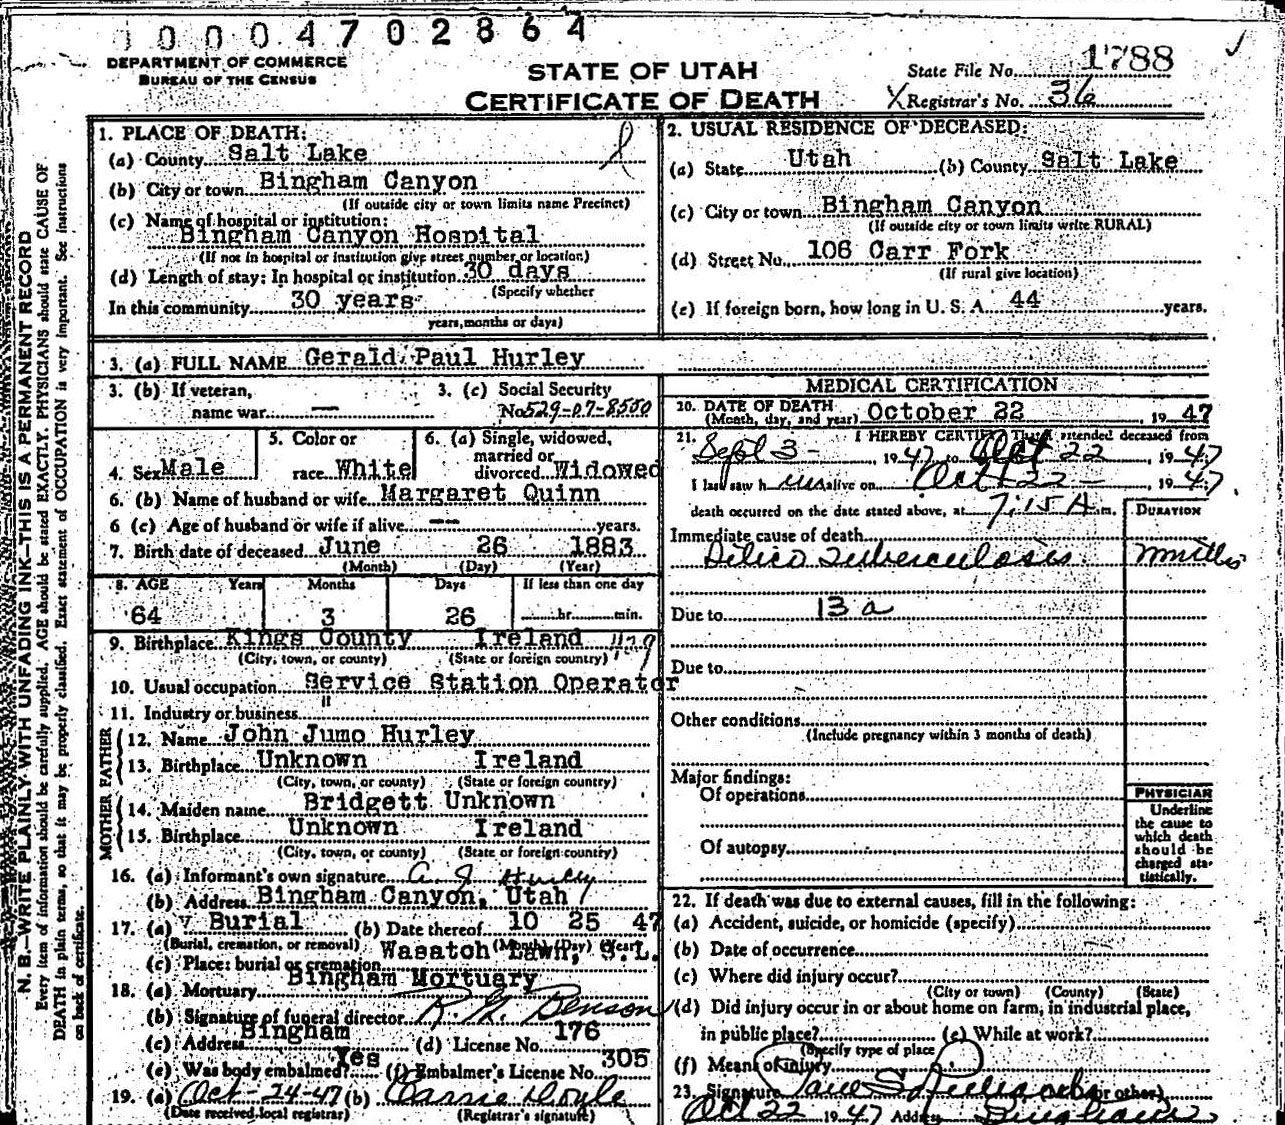 1 0 0 0 4 7 0 2 8 6 4
DEPARTMENT OF COMMERCE
BUREAU OF THE CENSUS
STATE OF UTAH
CERTIFICATE OF DEATH
State File No. 1788
X Registrar's No. 36
N. B.—WRITE PLAINLY WITH UNFADING INK—THIS IS A PERMANENT RECORD
Every item of information should be carefully supplied. AGE should be stated EXACTLY. PHYSICIANS should state CAUSE OF
DEATH in plain terms, so that it may be properly classified. Exact statement of OCCUPATION is very important. See instructions
on back of certificate.
1. PLACE OF DEATH:
(a) County Salt Lake
(b) City or town Bingham Canyon
(If outside city or town limits name Precinct)
(c) Name of hospital or institution:
Bingham Canyon Hospital
(If not in hospital or institution give street number or location)
(d) Length of stay: In hospital or institution 30 days
(Specify whether
In this community 30 years
years, months or days)
2. USUAL RESIDENCE OF DECEASED:
(a) State Utah (b) County Salt Lake
(c) City or town Bingham Canyon
(If outside city or town limits write RURAL)
(d) Street No. 106 Carr Fork
(If rural give location)
(e) If foreign born, how long in U. S. A. 44 years.
3. (a) FULL NAME Gerald Paul Hurley
3. (b) If veteran, 3. (c) Social Security
name war — No 529-07-8500
4. Sex Male
5. Color or
race White
6. (a) Single, widowed,
married or
divorced Widowed
6. (b) Name of husband or wife Margaret Quinn
6 (c) Age of husband or wife if alive -- years.
7. Birth date of deceased June 26 1883
(Month) (Day) (Year)
8. AGE Years Months Days If less than one day
64 3 26 hr. min.
9. Birthplace Kings County Ireland
(City, town, or county) (State or foreign country)
10. Usual occupation Service Station Operator
11. Industry or business "
FATHER
12. Name John Jumo Hurley
13. Birthplace Unknown Ireland
(City, town, or county) (State or foreign country)
MOTHER
14. Maiden name Bridgett Unknown
15. Birthplace Unknown Ireland
(City, town, or county) (State or foreign country)
16. (a) Informant's own signature A. J. Hurley
(b) Address Bingham Canyon, Utah
17. (a) Burial (b) Date thereof 10 25 47
(Burial, cremation, or removal) (Month) (Day) (Year)
(c) Place: burial or cremation Wasatch Lawn, S.L.
18. (a) Mortuary Bingham Mortuary
(b) Signature of funeral director R. M. Benson
(c) Address Bingham (d) License No. 176
(e) Was body embalmed? Yes (f) Embalmer's License No. 305
19. (a) Oct-24-47 (b) Carrie Doyle
(Date received local registrar) (Registrar's signature)
MEDICAL CERTIFICATION
20. DATE OF DEATH
(Month, day, and year) October 22 19 47
21. I HEREBY CERTIFY That I attended deceased from
Sept 3 - , 19 47 to Oct 22 , 19 47
I last saw h im alive on Oct 22 - , 19 47
death occurred on the date stated above, at 7:15 A m.
DURATION
Immediate cause of death
Silico Tuberculosis
Due to 13 a
Due to
Other conditions
(Include pregnancy within 3 months of death)
Major findings:
Of operations
Of autopsy
PHYSICIAN
Underline
the cause to
which death
should be
charged sta-
tistically.
22. If death was due to external causes, fill in the following:
(a) Accident, suicide, or homicide (specify)
(b) Date of occurrence
(c) Where did injury occur?
(City or town) (County) (State)
(d) Did injury occur in or about home on farm, in industrial place,
in public place? (e) While at work?
(Specify type of place)
(f) Means of injury
23. Signature Paul S. (or other)
Oct 22 19 47 Address Bingham